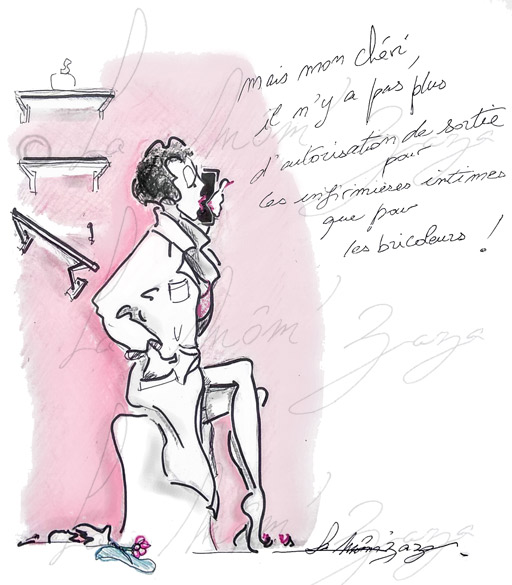 mais mon chéri,
il n'y a pas plus
d'autorisation de sortie
pour
les infirmières intimes
que pour
les bricoleurs !
La Môm'Zaza
© La Môm' Zaza
La Môm' Zaza
La Môm' Zaza